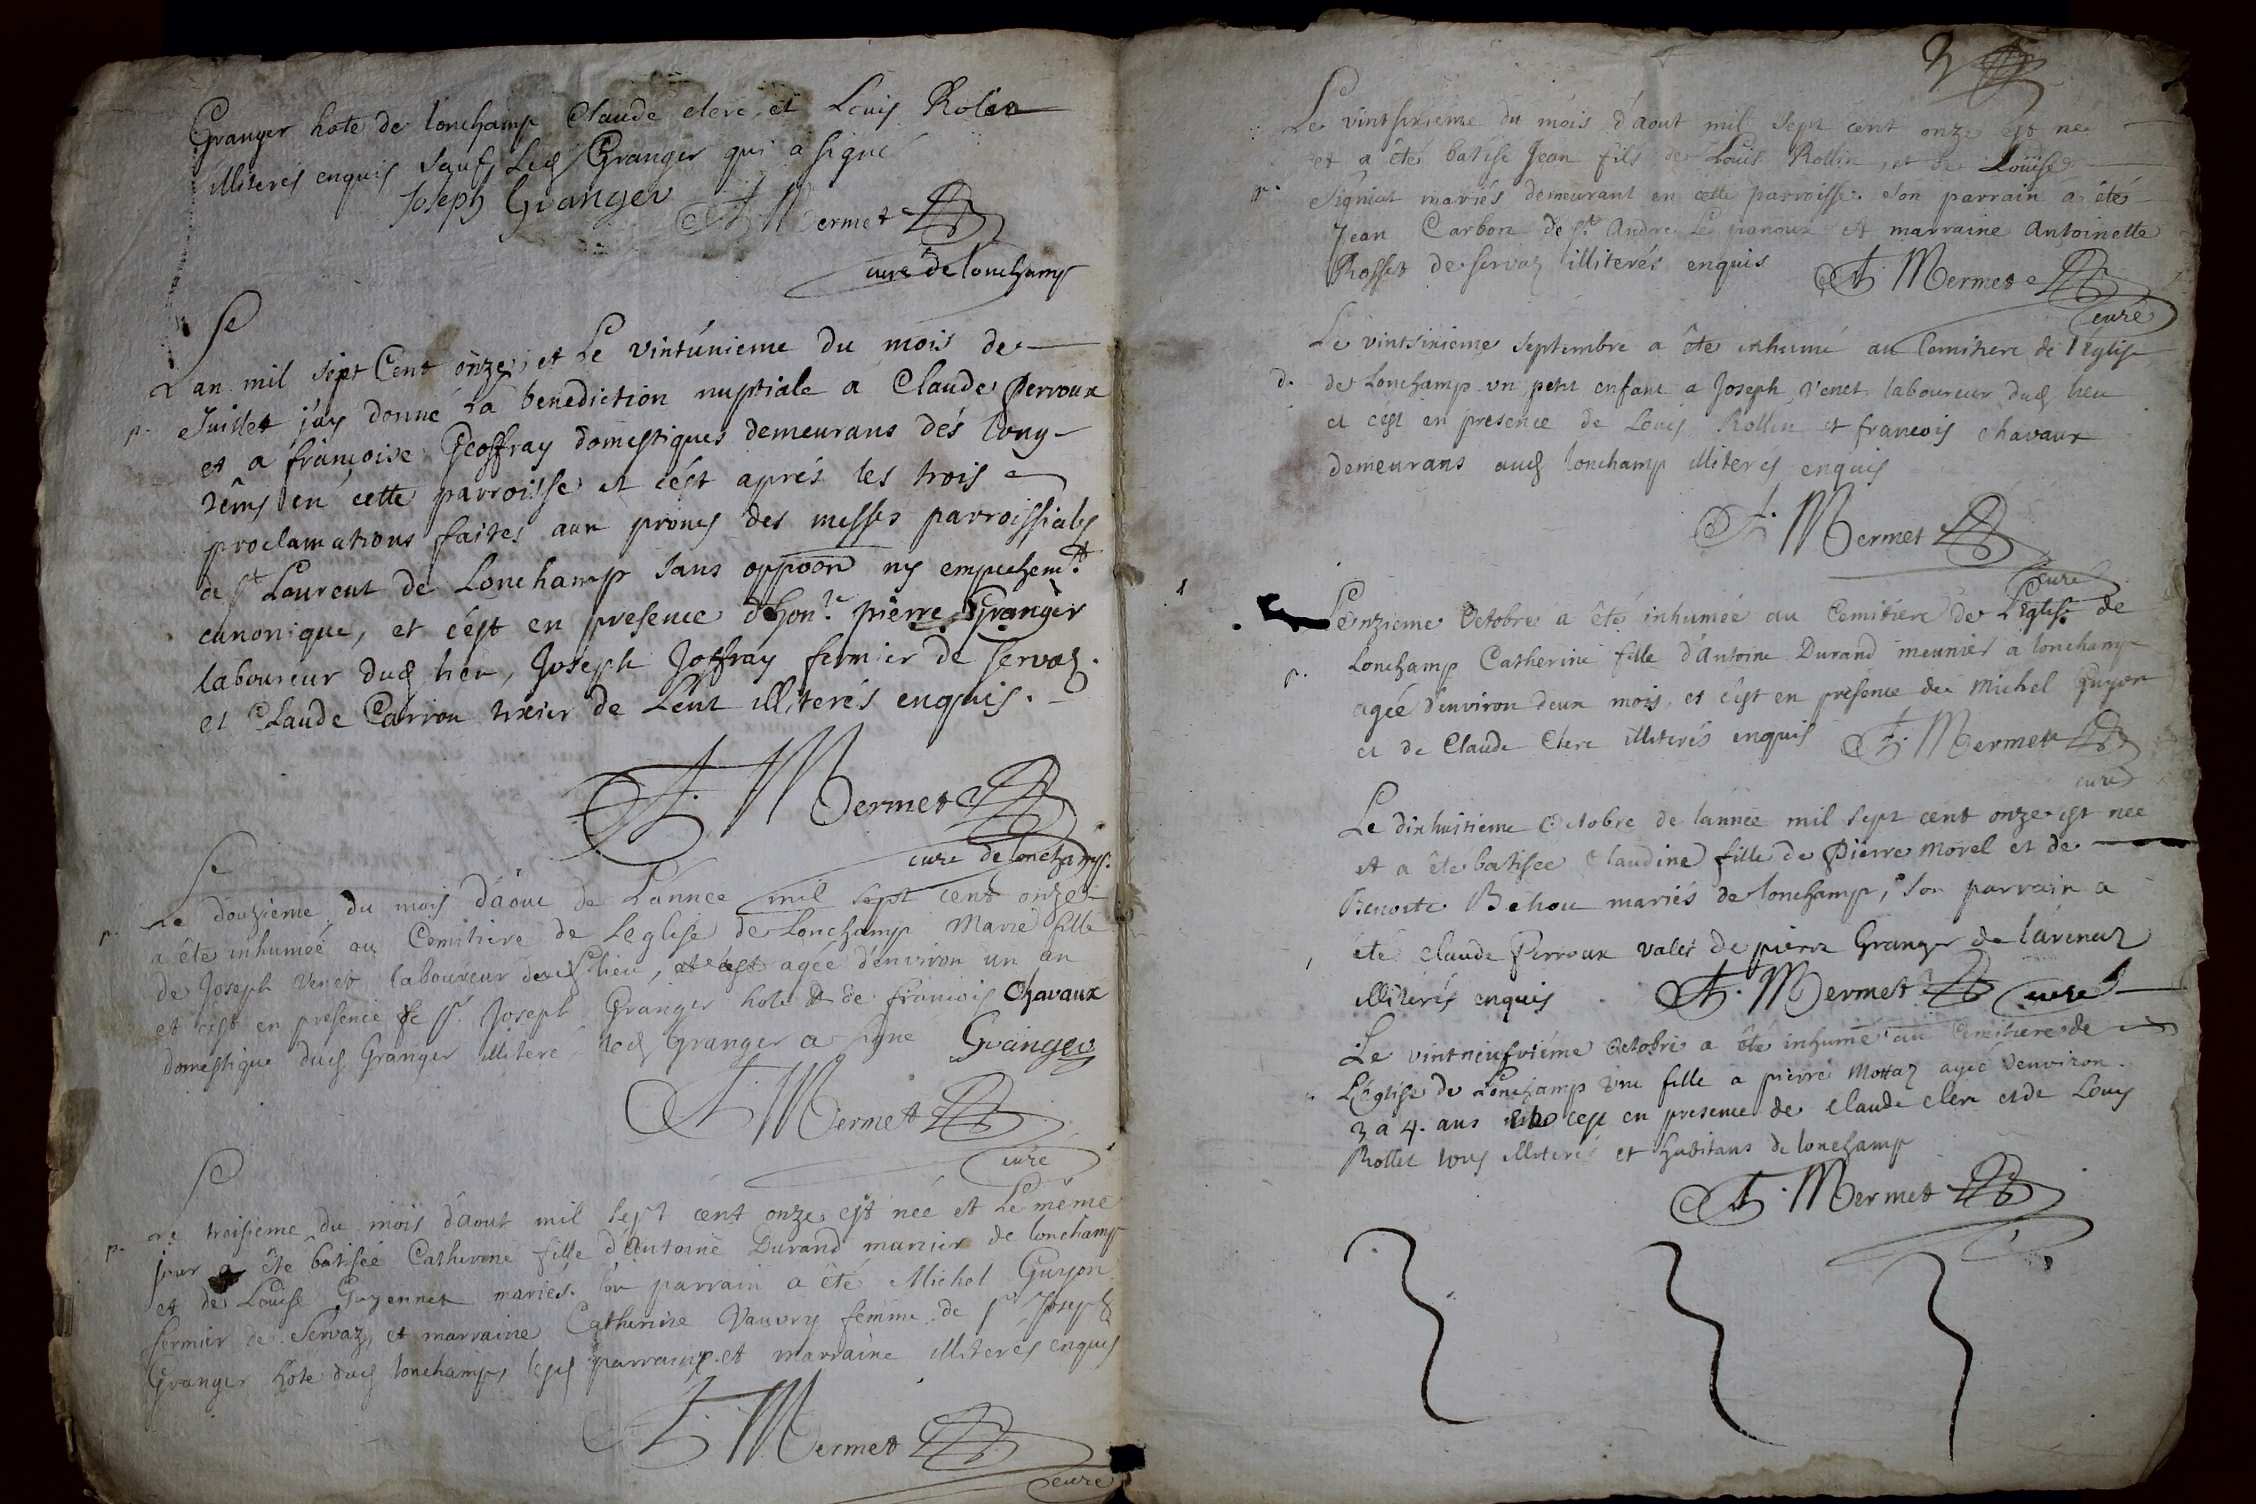 Granger hote de lonchamp Claude clerc et Louis Rolin
illiterés enquis sauf led Granger qui a signé
Joseph Granger
A. Mermet
curé de lonchamp
Lan mil sept Cent onze, et Le vintunieme du mois de
p. Juillet j'ay donné La benediction nuptiale a Claude Perroux
et a françoise Geoffray domestiques demeurans dés long
têms en cette parroisse et c'ést aprés les trois
proclamations faites aux prones des messes parroissiales
de St Laurent de Lonchamp sans oppoon ny empechemt
canonique, et c'ést en presence d'hon.le pierre Granger
laboureur dud lieu, Joseph Joffray fermier de Servaz.
et Claude Carron tixier de Lent illiterés enquis.
A. Mermet
curé de lonchamp.
p. Le douzieme du mois d'aout de L'année mil sept cent onze
a été inhumée au Cemitiere de Leglise de Lonchamp Marie fille
de Joseph Venet laboureur dud lieu, agée d'environ un an
et c'est en presence de Sr. Joseph Granger hote et de francois Chavaux
domestique dud Granger illiteré led Granger a signe Granger
A. Mermet
curé
p. Le troisieme du mois d'aout mil sept cent onze est née et Le même
jour a été batisée Catherine fille d'Antoine Durand munier de lonchamp
et de Louise Guyennet mariés. son parrain a été Michel Guyon
fermier de Servaz, et marraine Catherine Vauvry femme de Sr Joseph
Granger hote dud lonchamp, lesd parrain et marraine illiterés enquis
A. Mermet
curé
3
Le vintsixieme du mois d'aout mil sept cent onze est né
et a été batisé Jean fils de Louis Rollin, et de Louise
p. Signiat mariés demeurant en cette parroisse. son parrain a été
Jean Carbon de St. André Le panoux et marraine Antoinette
Rosset de Servaz illiterés enquis A. Mermet
curé
Le vintsixieme Septembre a été inhumé au Cemitiere de l'Eglise
d. de Lonchamp un petit enfant a Joseph Venet laboureur dud lieu
et c'est en presence de Louis Rollin et francois chavaux
demeurans aud lonchamp illiteres enquis
A. Mermet
curé
Lonzieme Octobre a été inhumée au Cemitiere de L'Eglise de
p. Lonchamp Catherine fille d'Antoine Durand meunier a lonchamp
agée d'environ deux mois, et c'est en présence de Michel Guyon
et de Claude Clerc illiterés enquis A. Mermet
curé
Le dixhuitieme Octobre de lannée mil sept cent onze est née
et a été batisée Claudine fille de Pierre Morel et de
Benoite Bchou mariés de lonchamp, son parrain a
été Claude Perroux valet de pierre Granger
illiterés enquis A. Mermet curé
Le vintneufviéme Octobre a été inhumé au Cemitiere de
L'Eglise de Lonchamp une fille a pierre Mottaz agée d'environ
3 a 4. ans c'est en presence de Claude clerc et de Louis
Rollet tous illiterés et habitans de lonchamp
A. Mermet